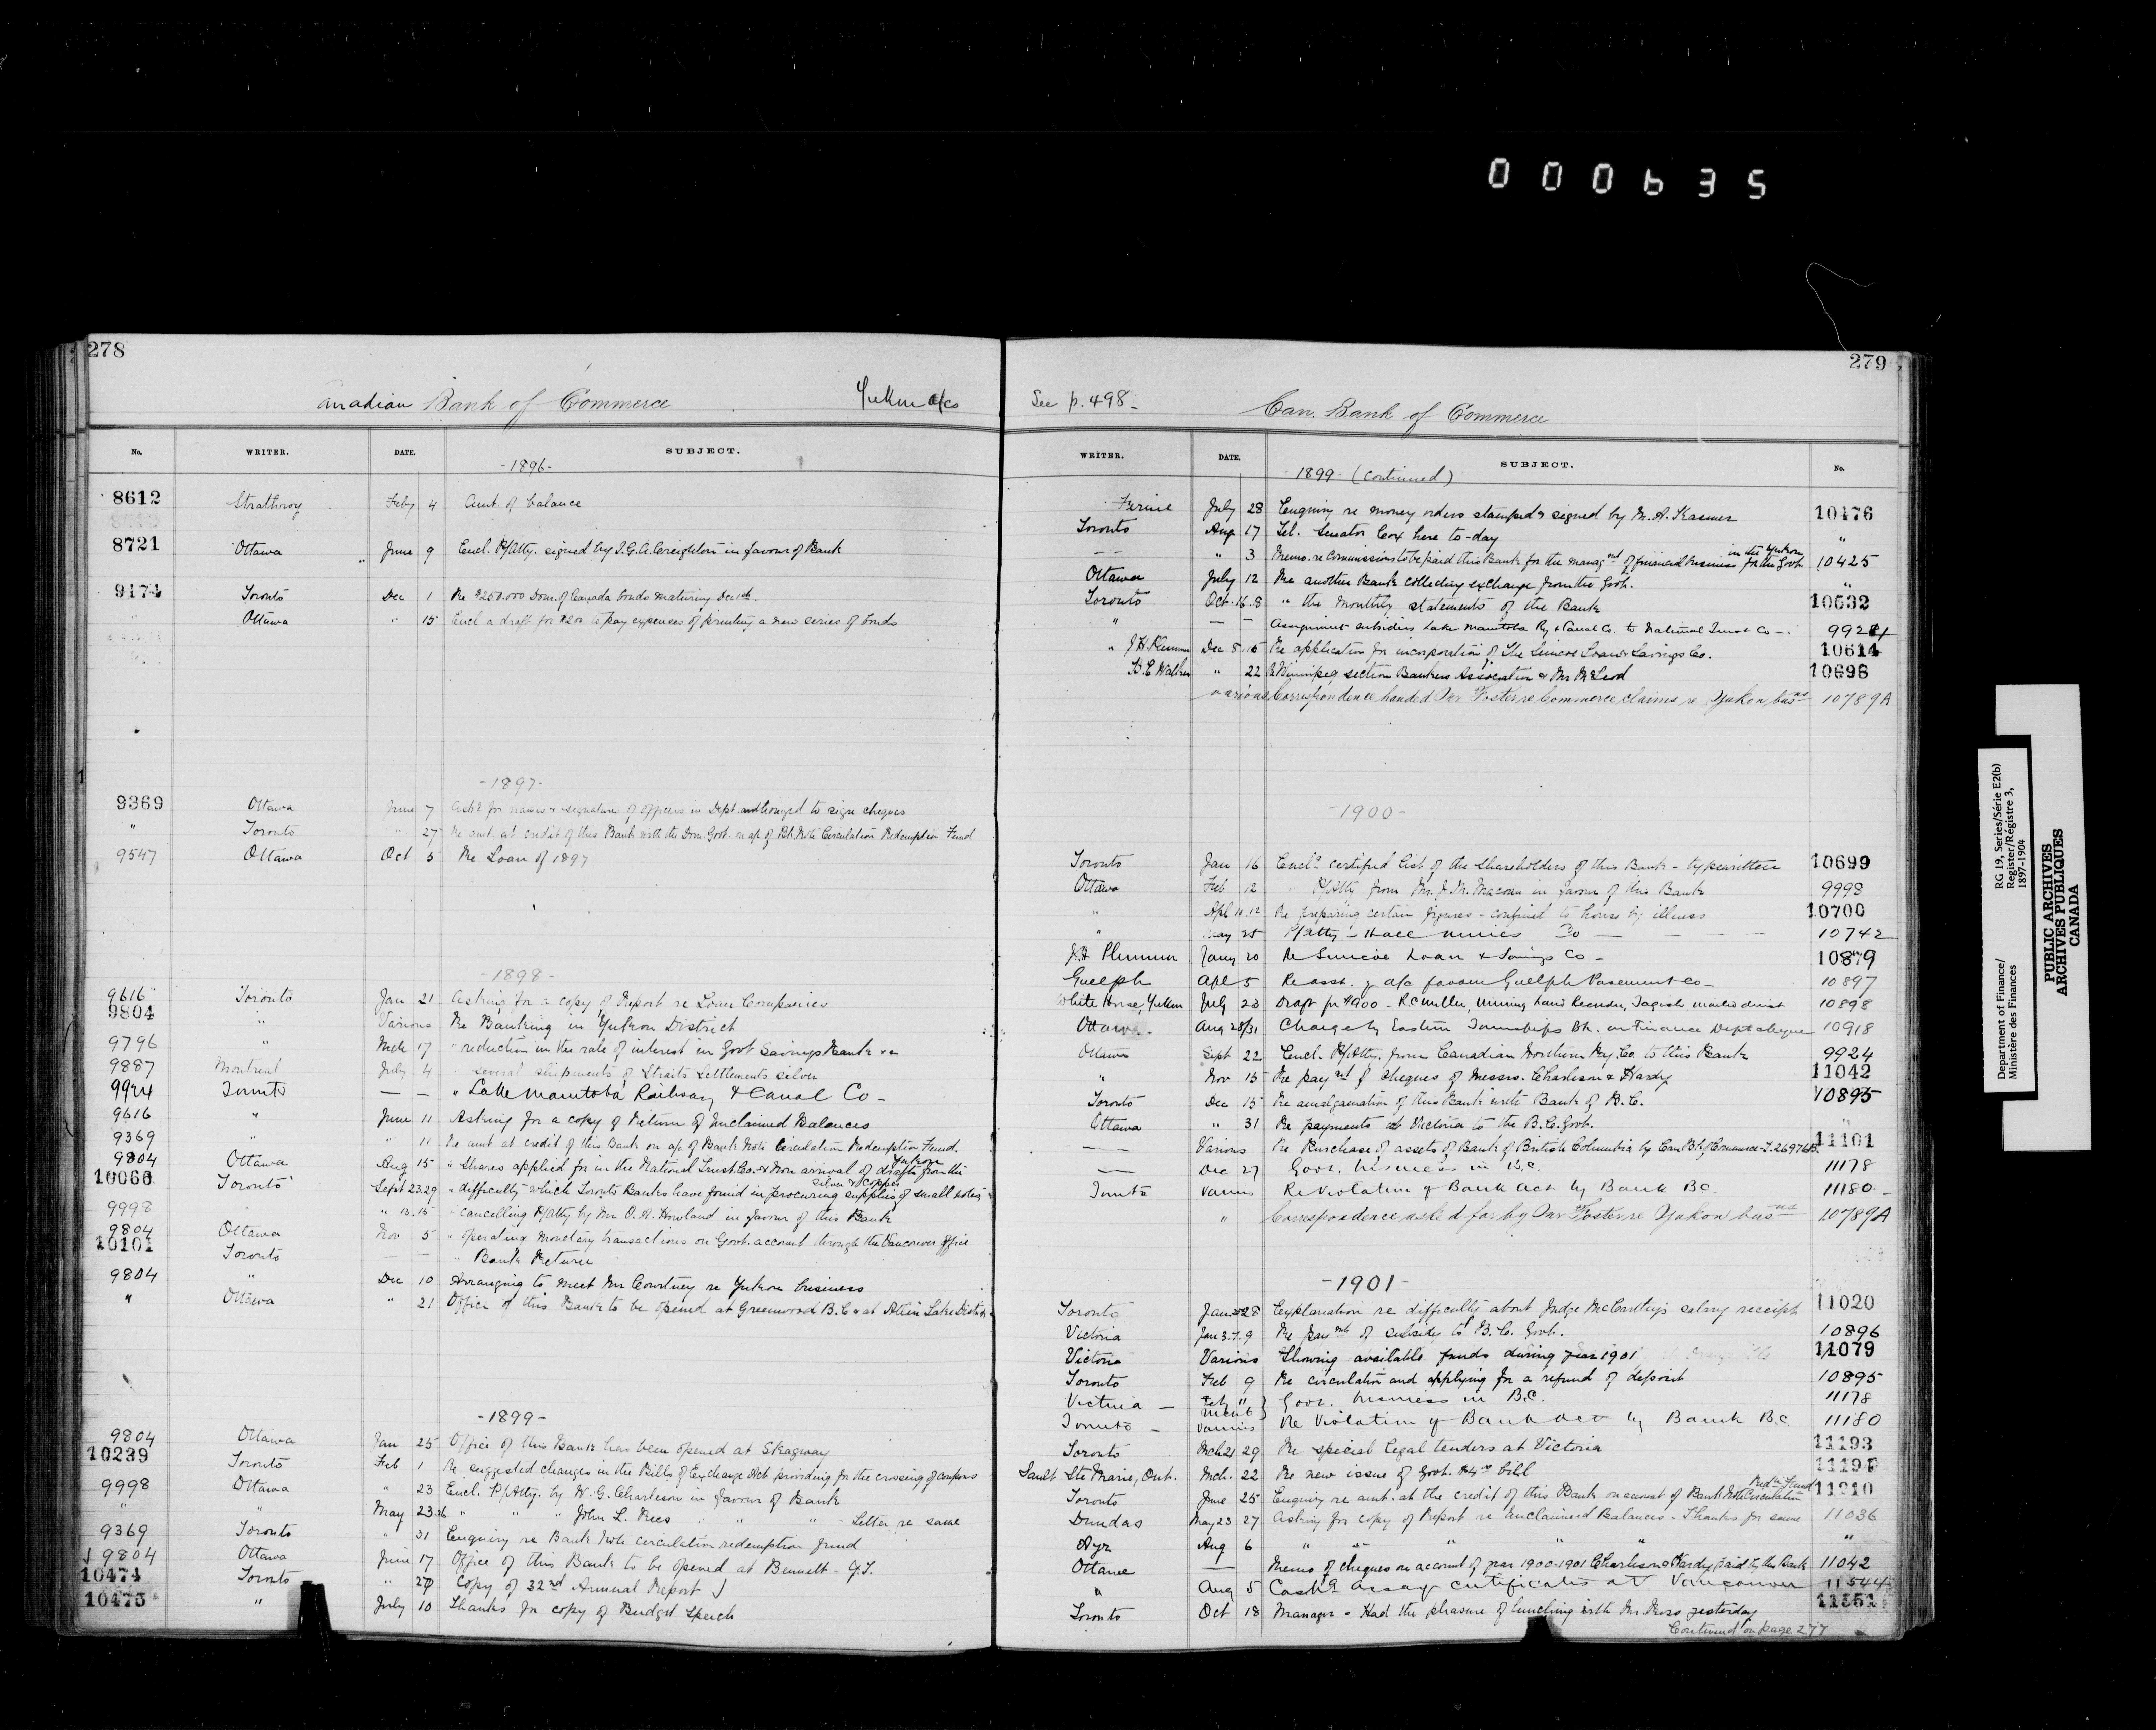 000635
278
Canadian Bank of Commerce Yukon a/cs
No. WRITER. DATE. SUBJECT.
-1896-
8612 Strathroy Feby 4 Amt. of balance
8721 Ottawa June 9 Encl. P/Atty. signed by J.G.A. Creighton in favour of Bank
9174 Toronto Dec 1 Re $250.000 Dom. of Canada bonds maturing Dec 1st.
" Ottawa " 15 Encl a draft for $200. to pay expenses of printing a new series of bonds
-1897-
9369 Ottawa June 7 Askg for names & signature of officers in Dept. authorized to sign cheques
" Toronto " 27 Re amt. at credit of this Bank with the Dom. Govt. on a/c of Bk Note Circulation Redemption Fund
9547 Ottawa Oct 5 Re Loan of 1897
-1898-
9616 Toronto Jan 21 Asking for a copy of Report re Loan Companies
9804 " Various Re Banking in Yukon District
9796 " Mch 17 " reduction in the rate of interest in Govt Savings Bank &c
9887 Montreal July 4 " several shipments of Straits Settlements silver
9924 Toronto — — " Lake Manitoba Railway & Canal Co -
9616 " June 11 Asking for a copy of Return of Unclaimed Balances
9369 " " 11 Re amt at credit of this Bank on a/c of Bank Note Circulation Redemption Fund.
9804 Ottawa Aug 15 " Shares applied for in the National Trust Co. & Non arrival of drafts from the Yukon
10066 Toronto Sept 23.29 " difficulty which Toronto Banks have found in procuring supplies of small notes silver & copper
9998 " " 13.15 " cancelling P/Atty by Mr O.A. Howland in favour of this Bank
9804 Ottawa Nov 5 " operating Monetary transactions on Govt. account through the Vancouver Office
10101 Toronto — — " Bank Return
9804 " Dec 10 Arranging to meet Mr Courtney re Yukon business
" Ottawa " 21 Office of this Bank to be opened at Greenwood B.C & at Atlin Lake District
-1899-
9804 Ottawa Jan 25 Office of this Bank has been opened at Skagway
10239 Toronto Feb 1 Re suggested changes in the Bills of Exchange Act providing for the crossing of coupons
9998 Ottawa " 23 Encl. P/Atty. by W.G. Charleson in favour of Bank
" " May 23.26 " " " John L. Rees " " " - Letter re same
9369 Toronto " 31 Enquiry re Bank Note circulation redemption fund
9804 Ottawa June 17 Office of this Bank to be opened at Bennett - Y.T.
10474 Toronto " 27 Copy of 32nd Annual Report
10475 " July 10 Thanks for copy of Budget Speech
279
See p. 498- Can. Bank of Commerce
WRITER. DATE. SUBJECT. No.
1899- (Continued)
Fernie July 28 Enquiry re money orders stamped & signed by 10476
Toronto Aug 17 Tel. Senator Cox here to-day "
— — " 3 Memo. re Commissions to be paid this Bank for the managmt of financial business for the Govt in the Yukon 10425
Ottawa July 12 Re another Bank collecting exchange from the Govt. "
Toronto Oct. 16.18 " the Monthly statements of the Bank 10532
" — — Assignment subsidies Lake Manitoba Ry & Canal Co. to National Trust Co -. 9924
" J H. Plummer Dec 8.15 Re application for incorporation of The Simcoe Loan & Savings Co. 10614
B.E. Walker " 22 Winnipeg section Bankers Association & Mr McLeod 10698
various Correspondence handed Mr Foster re Commerce claims re Yukon busns 10789A
-1900-
Toronto Jan 16 Encl.g certified list of the Shareholders of this Bank - typewritten 10699
Ottawa Feb 12 P/Atty from Mr. J.M. Macoun in favour of this Bank 9998
" Apl 11.12 Re preparing certain figures - confined to house by illness 10700
" May 25 P/Atty - Hall Mines Co — — — 10742
J.H Plummer Jany 20 Re Simcoe Loan & Savings Co - 10879
Guelph Apl 5 Re asst. of a/c favour Guelph Pavement Co - 10897
White Horse, Yukon July 23 Draft for $900 - R C Miller, Mining Land Recorder, Tagish 10898
Ottawa Aug 28/31 Charge by Eastern Townships Bk. on Finance Dept cheque 10918
Ottawa Sept 22 Encl. P/Atty. from Canadian Northern Ry. Co. to this Bank 9924
" Nov 15 Re paymt of cheques of Messrs. Charleson & Hardy 11042
Toronto Dec 15 Re amalgamation of this Bank with Bank of B.C. 10895
Ottawa " 31 Re payments at Victoria to the B.C. Govt. "
— — Various Re Purchase of assets of Bank of British Columbia by Can Bk of Commerce - 11101
— Dec 27 Govt. business in B.C. 11178
Toronto Various Re Violation of Bank Act by Bank BC. 11180
" Correspondence asked for by Mr Foster re Yukon busns 10789A
-1901-
Toronto Jan 28 Explanation re difficulty about Judge McCarthy's salary receipt 11020
Victoria Jan 3.7.9 Re paymt of subsidy to B.C. Govt. 10896
Victoria Various Showing available funds during year 1901 11079
Toronto Feb 9 Re circulation and applying for a refund of deposit 10895
Victoria — Feb " Mch 6 } Govt. business in B.C. 11178
Toronto - Various Re Violation of Bank Act by Bank BC. 11180
Toronto Mch 21 29 Re special legal tenders at Victoria 11193
Sault Ste Marie, Ont. Mch. 22 Re new issue of Govt. $4.00 bill
Toronto June 25 Enquiry re amt. at the credit of this Bank on account of Bank Note Circulation Redn Fund 11210
Dundas May 23 27 Asking for copy of Report re Unclaimed Balances - Thanks for same 11036
Ayr Aug 6 " " " " "
Ottawa — Memo of cheques on account of year 1900-1901 Charleson & Hardy, paid by this Bank 11042
" Aug 5 Cashg assay certificates at Vancouver 11544
Toronto Oct 18 Manager - Had the pleasure of lunching with yesterday 11551
Continued on page 277
Department of Finance/ Ministère des Finances
RG 19, Series/Série E2(b) Register/Régistre 3, 1897-1904
PUBLIC ARCHIVES
ARCHIVES PUBLIQUES
CANADA